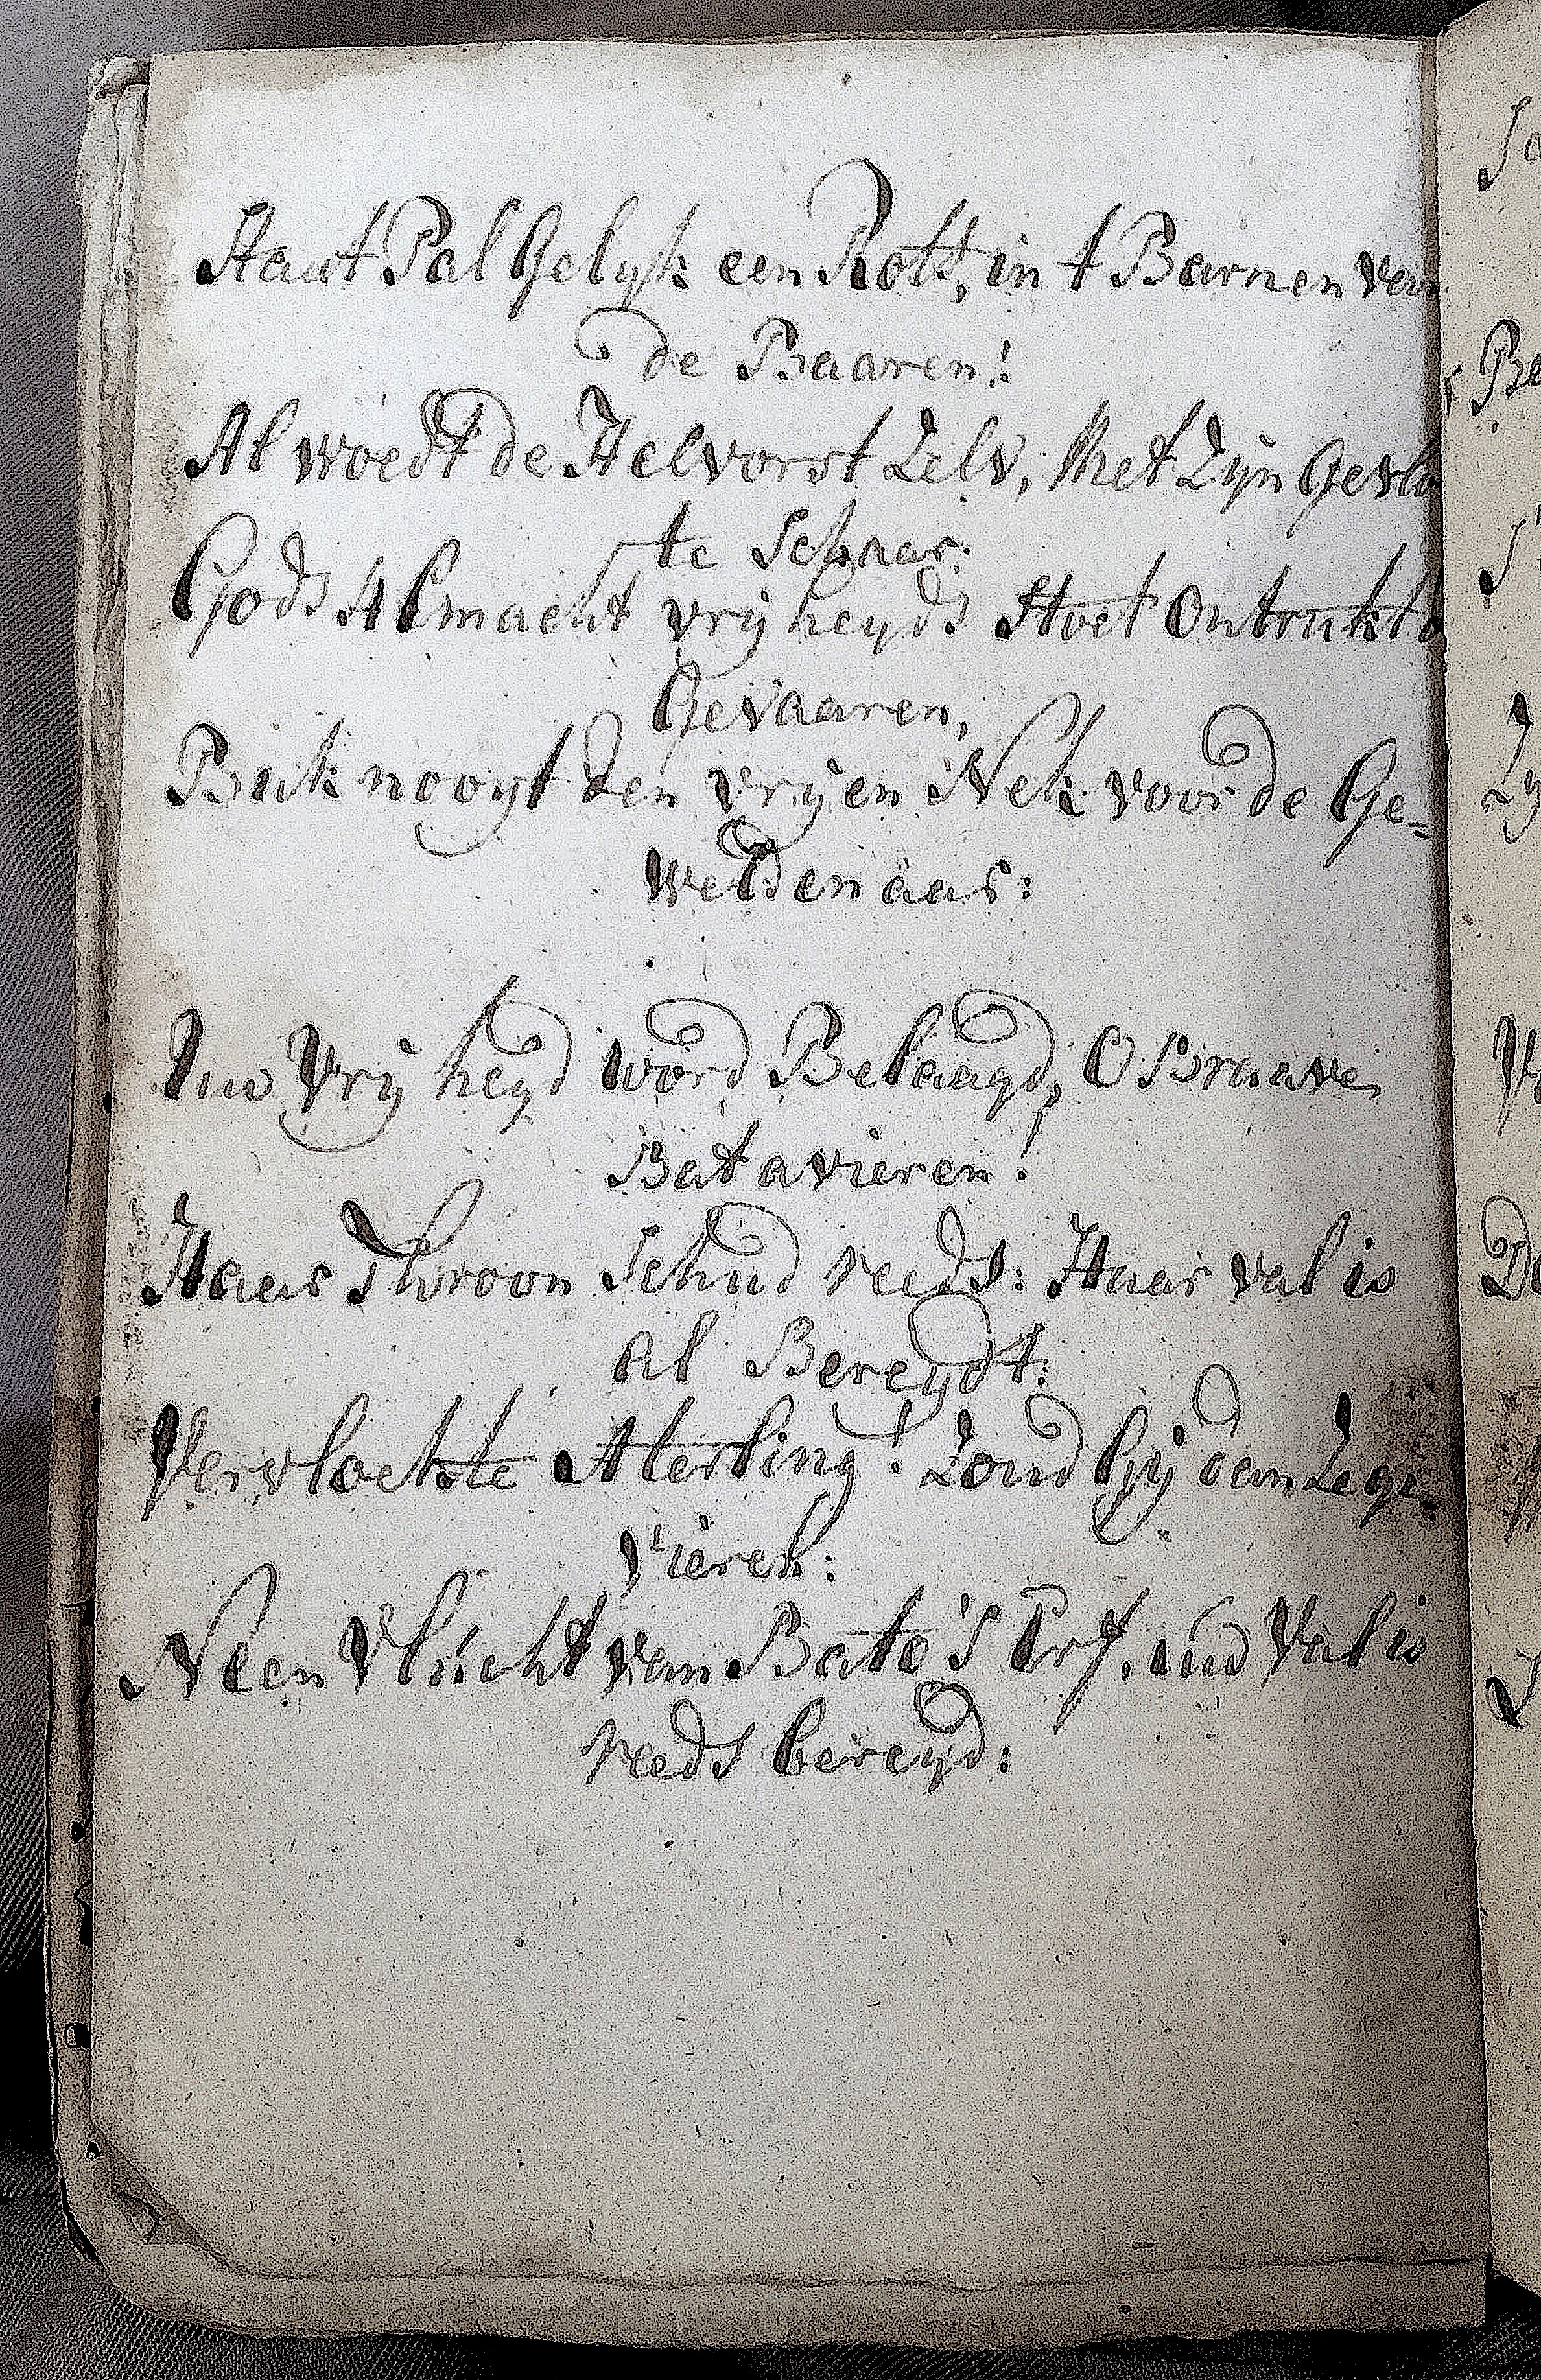 Staat Pal Gelyk een Rots, in t Barnen van
de Baaren!
Al woedt de Helvorst Zelv, Met Zijn Gevlo
te Schaar.
Gods Almacht vrijheyds Stoet Ontrukt
Gevaaren,
Buk nooyt den vrijen Nek voor de Ge=
weldenaar:
Uw Vrijheyd word Belaagd, O Braave
Batavieren!
Haar Throon Schud reeds: Haar val is
al Bereydt:
Vervloekste Aterling! Zoud Gij dan Zege-
vieren:
Neen Vlucht van Bato's Erf. uw Val is
reeds bereyd: